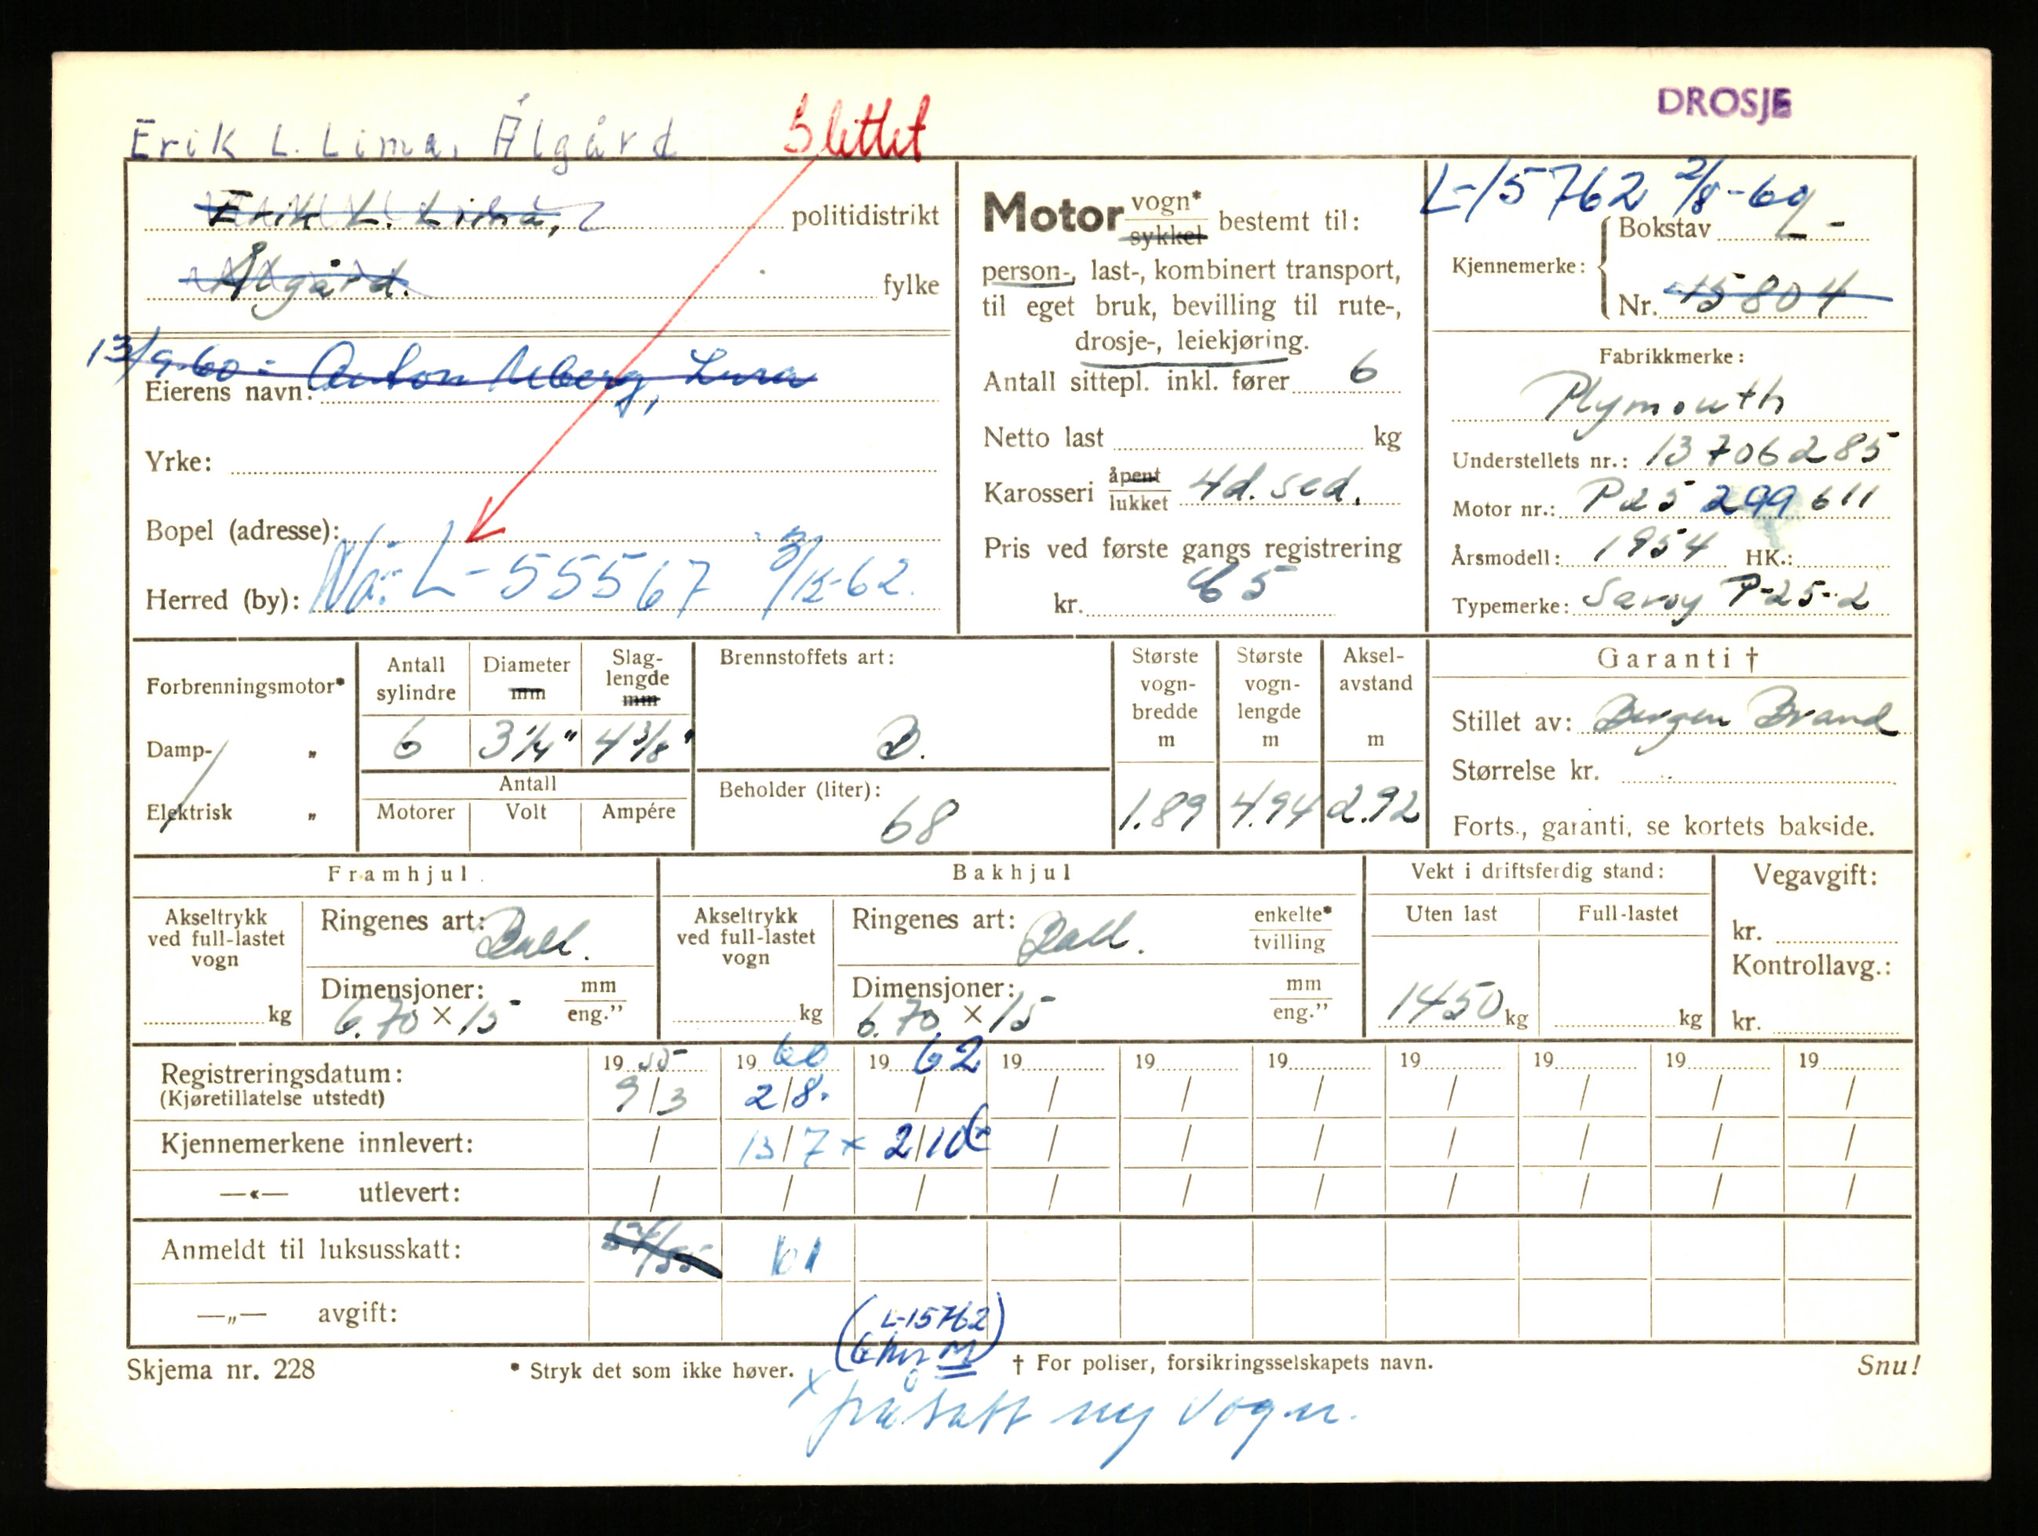 DROSJE
Erik L. Lima, Ålgård Slettet
Erik L. Lima, politidistrikt
Ålgård. fylke
13/9-60 - Anton Ueberg, Lura
Eierens navn:
Yrke:
Bopel (adresse):
Nå: L-55567 3/12-62.
Herred (by):
Motor vogn* sykkel bestemt til:
person-, last-, kombinert transport,
til eget bruk, bevilling til rute-,
drosje-, leiekjøring.
Antall sittepl. inkl. fører 6
Netto last kg
Karosseri åpent lukket 4d. sed.
Pris ved første gangs registrering
kr. 65
L-15762 2/8-60
Kjennemerke: Bokstav L-
Nr. 15804
Fabrikkmerke:
Plymouth
Understellets nr.: 13706285
Motor nr.: P25 299611
Årsmodell: 1954 HK.:
Typemerke: Savoy P-25-2
Forbrenningsmotor*
Damp- „
Elektrisk „
Antall sylindre 6
Diameter mm 3 1/4"
Slaglengde mm 4 3/8"
Antall
Motorer Volt Ampére
Brennstoffets art:
B.
Beholder (liter):
68
Største vognbredde m 1.89
Største vognlengde m 4.94
Akselavstand m 2.92
Garanti †
Stillet av: Bergen Brand
Størrelse kr.
Forts., garanti, se kortets bakside.
Framhjul
Akseltrykk ved full-lastet vogn kg
Ringenes art: Ball.
Dimensjoner: mm eng.”
6.70 × 15
Bakhjul
Akseltrykk ved full-lastet vogn kg
Ringenes art: Ball. enkelte* tvilling
Dimensjoner: mm eng.”
6.70 × 15
Vekt i driftsferdig stand:
Uten last Full-lastet
1450 kg kg
Vegavgift:
kr.
Kontrollavg.:
kr.
19 55 19 60 19 62 19 19 19 19 19 19 19
Registreringsdatum: 9/3 2/8. / / / / / / / /
(Kjøretillatelse utstedt)
Kjennemerkene innlevert: / 13/7 x 2/10 / / / / / / /
—«— utlevert: / / / / / / / / / /
Anmeldt til luksusskatt: 54/55 61
—„— avgift:
(L-15762
Skjema nr. 228 * Stryk det som ikke høver. † For poliser, forsikringsselskapets navn. Snu!
x påsatt ny vogn.